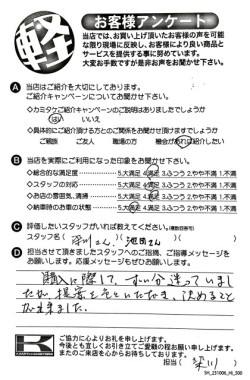 軽
お客様アンケート
当店では、お買い上げ頂いたお客様の声を可能
な限り現場に反映し、お客様により良い商品と
サービスを提供する事に努めています。
大変お手数ですが是非お声をお聞かせ下さい。
A 当店はご紹介を大切にしております。
ご紹介キャンペーンについてお聞かせ下さい。
◇カミタケご紹介キャンペーンのご説明はありましたでしょうか
はい いいえ
◇具体的にご紹介頂ける方とのご関係をお聞かせ頂けますでしょうか
ご親族 ご友人 職場の方 機会があれば紹介したい
B 当店を実際にご利用になった印象をお聞かせ下さい。
◇総合的な満足度 5.大満足 4.満足 3.ふつう 2.やや不満 1.不満
◇スタッフの対応 5.大満足 4.満足 3.ふつう 2.やや不満 1.不満
◇お店の雰囲気、清掃 5.大満足 4.満足 3.ふつう 2.やや不満 1.不満
◇納車時のお車の状態 5.大満足 4.満足 3.ふつう 2.やや不満 1.不満
C 評価したいスタッフがいれば教えてください。(複数回答可)
スタッフ名( 深川さん )( 池田さん )
D 担当させて頂きましたスタッフへのご指摘、ご指導メッセージを
お願いします。応援メッセージもぜひお願いします。
購入に際して、ずい分迷っていまし
たが、提案をもいただき、決めること
が出来ました。
K
ご協力に心よりお礼を申し上げます。
今後とも宜しくお引き立てご愛顧の程お願い申し上げます。
またのご来店を心からお待ちしております。
担当( 深川 )